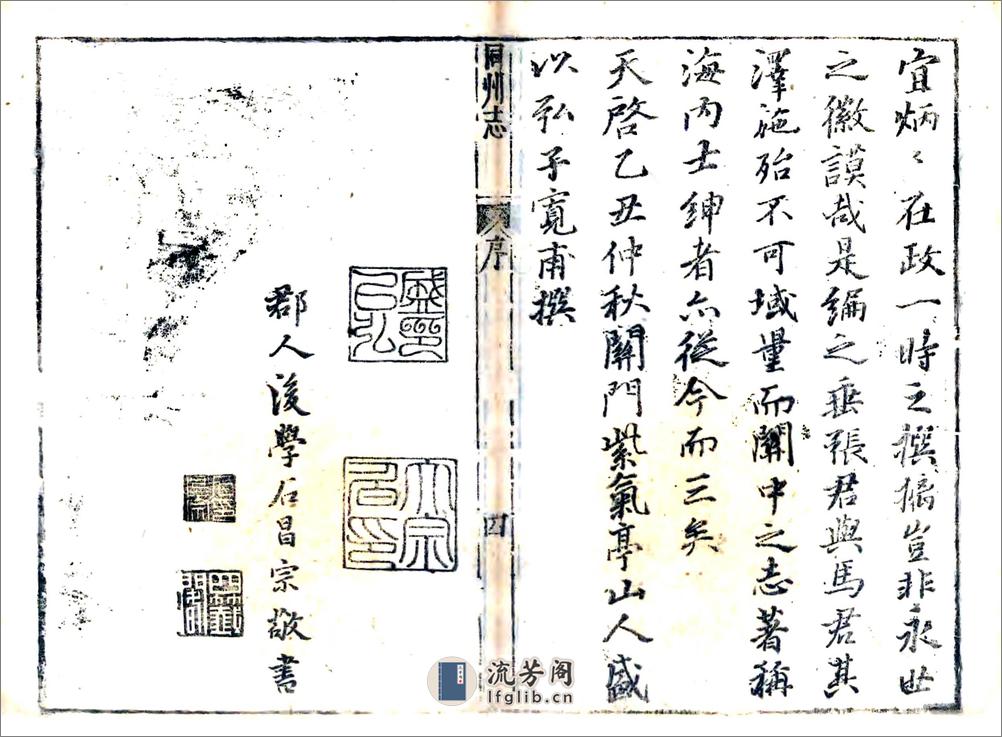 宜炳〻在政一時之撰摛豈非永世
之徽謨哉是編之垂張君與馬君其
澤施殆不可域量而關中之志著稱
海內士紳者亦從今而三矣
天啓乙丑仲秋關門紫氣亭山人盛
以弘子寬甫撰
同州志
序
四
盛以弘印
大宗伯印
郡人後學石昌宗敬書
流芳阁
lfglib.cn